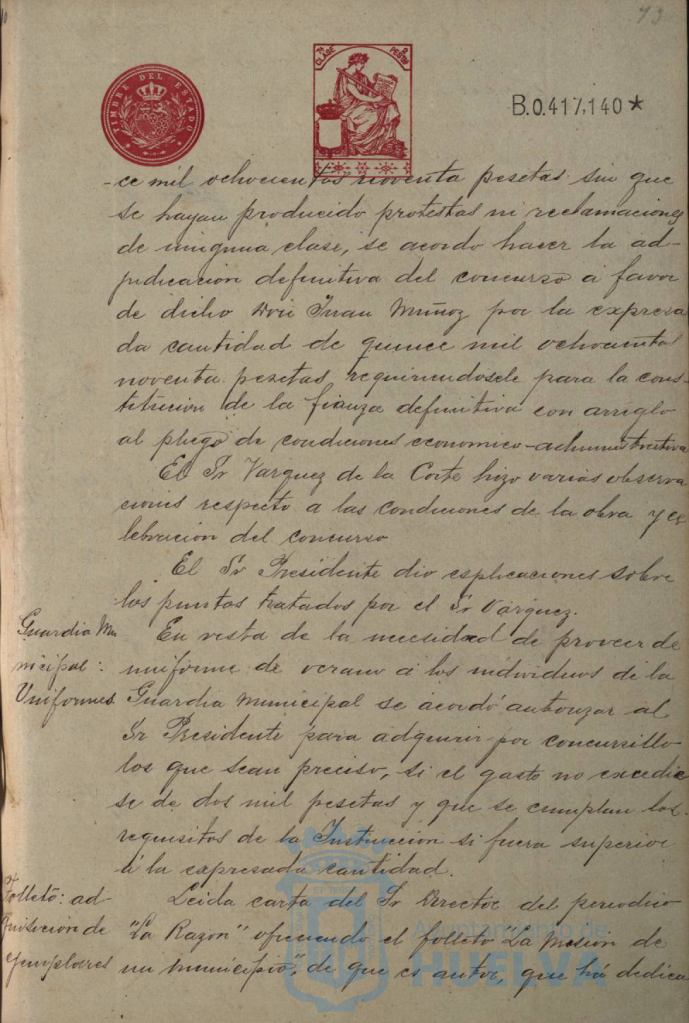 73
TIMBRE DEL ESTADO
7ª CLASE 2 PESETAS
B.0.417,140 *
-ce mil ochocientos noventa pesetas sin que
se hayan producido protestas ni reclamaciones
de ninguna clase, se acordo hacer la ad-
judicacion definitiva del concurso a favor
de dicho Don Juan Muñoz por la expresa
da cantidad de quince mil ochocientas
noventa pesetas requiriendosele para la cons-
titucion de la fianza definitiva con arreglo
al pliego de condiciones economico-administrativas
El Sr Vazquez de la Corte hizo varias observa
ciones respecto a las condiciones de la obra y ce
lebracion del concurso
El Sr Presidente dio esplicaciones sobre
los puntos tratados por el Sr Vazquez.
Guardia Mu
nicipal:
Uniformes
En vista de la necesidad de proveer de
uniforme de verano a los individuos de la
Guardia Municipal se acordó autorizar al
Sr Presidente para adquirir por concursillo
los que sean preciso, si el gasto no excedie
se de dos mil pesetas y que se cumplan los
requisitos de la Instruccion si fuera superior
á la expresada cantidad.
Folleto: ad
quisicion de
ejemplares
Leida carta del Sr Director del periodico
"La Razon" ofreciendo el folleto "La Mision de
un Municipio", de que es autor, que há dedica
Ayuntamiento de
HUELVA